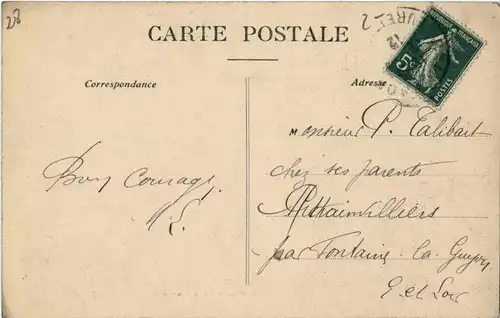 28
CARTE POSTALE
Correspondance
Adresse
RÉPUBLIQUE FRANÇAISE
5c
POSTES
12
Monsieur P. Talibart
chez ses parents
Bon Courage
par Fontaine la Guyon
E et Loir